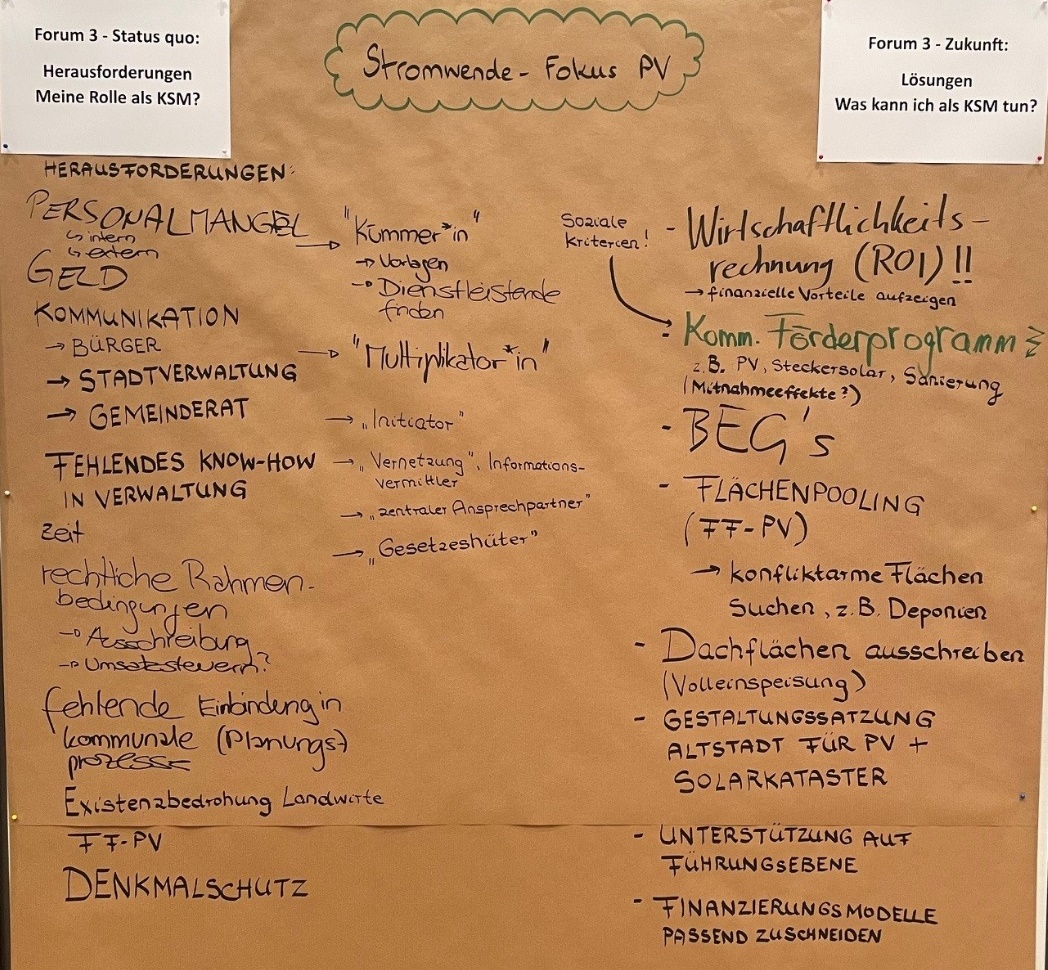 Forum 3 - Status quo:
Herausforderungen
Meine Rolle als KSM?
Stromwende - Fokus PV
Forum 3 - Zukunft:
Lösungen
Was kann ich als KSM tun?
HERAUSFORDERUNGEN:
PERSONALMANGEL
↳ intern
↳ extern
GELD
KOMMUNIKATION
→ BÜRGER
→ STADTVERWALTUNG
→ GEMEINDERAT
FEHLENDES KNOW-HOW
IN VERWALTUNG
Zeit
rechtliche Rahmen-
bedingungen
→ Ausschreibung
→ Umsatzsteuern?
fehlende Einbindung in
kommunale (Planungs-)
prozesse
Existenzbedrohung Landwirte
FF-PV
DENKMALSCHUTZ
→ "Kümmer*in"
→ Vorlagen
→ Dienstleistende
finden
→ "Multiplikator*in"
→ „Initiator"
→ „Vernetzung", Informations-
vermittler
→ „zentraler Ansprechpartner"
→ „Gesetzeshüter"
Soziale
Kriterien!
- Wirtschaftlichkeits-
rechnung (ROI)!!
→ finanzielle Vorteile aufzeigen
- Komm. Förderprogramm
z.B. PV, Steckersolar, Sanierung
(Mitnahmeeffekte?)
- BEG's
- FLÄCHENPOOLING
(FF-PV)
→ konfliktarme Flächen
suchen, z.B. Deponien
- Dachflächen ausschreiben
(Volleinspeisung)
- GESTALTUNGSSATZUNG
ALTSTADT FÜR PV +
SOLARKATASTER
- UNTERSTÜTZUNG AUF
FÜHRUNGSEBENE
- FINANZIERUNGSMODELLE
PASSEND ZUSCHNEIDEN